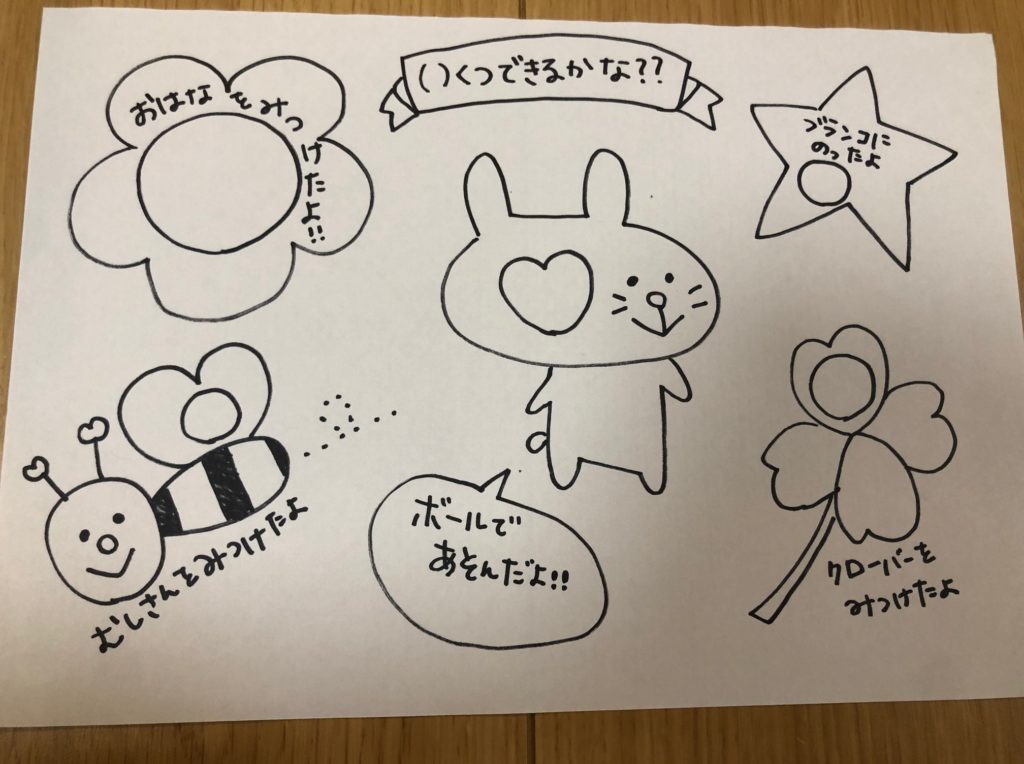 いくつできるかな??
おはなをみつけたよ!!
ブランコに
のったよ
むしさんをみつけたよ
ボールで
あそんだよ!!
クローバーを
みつけたよ